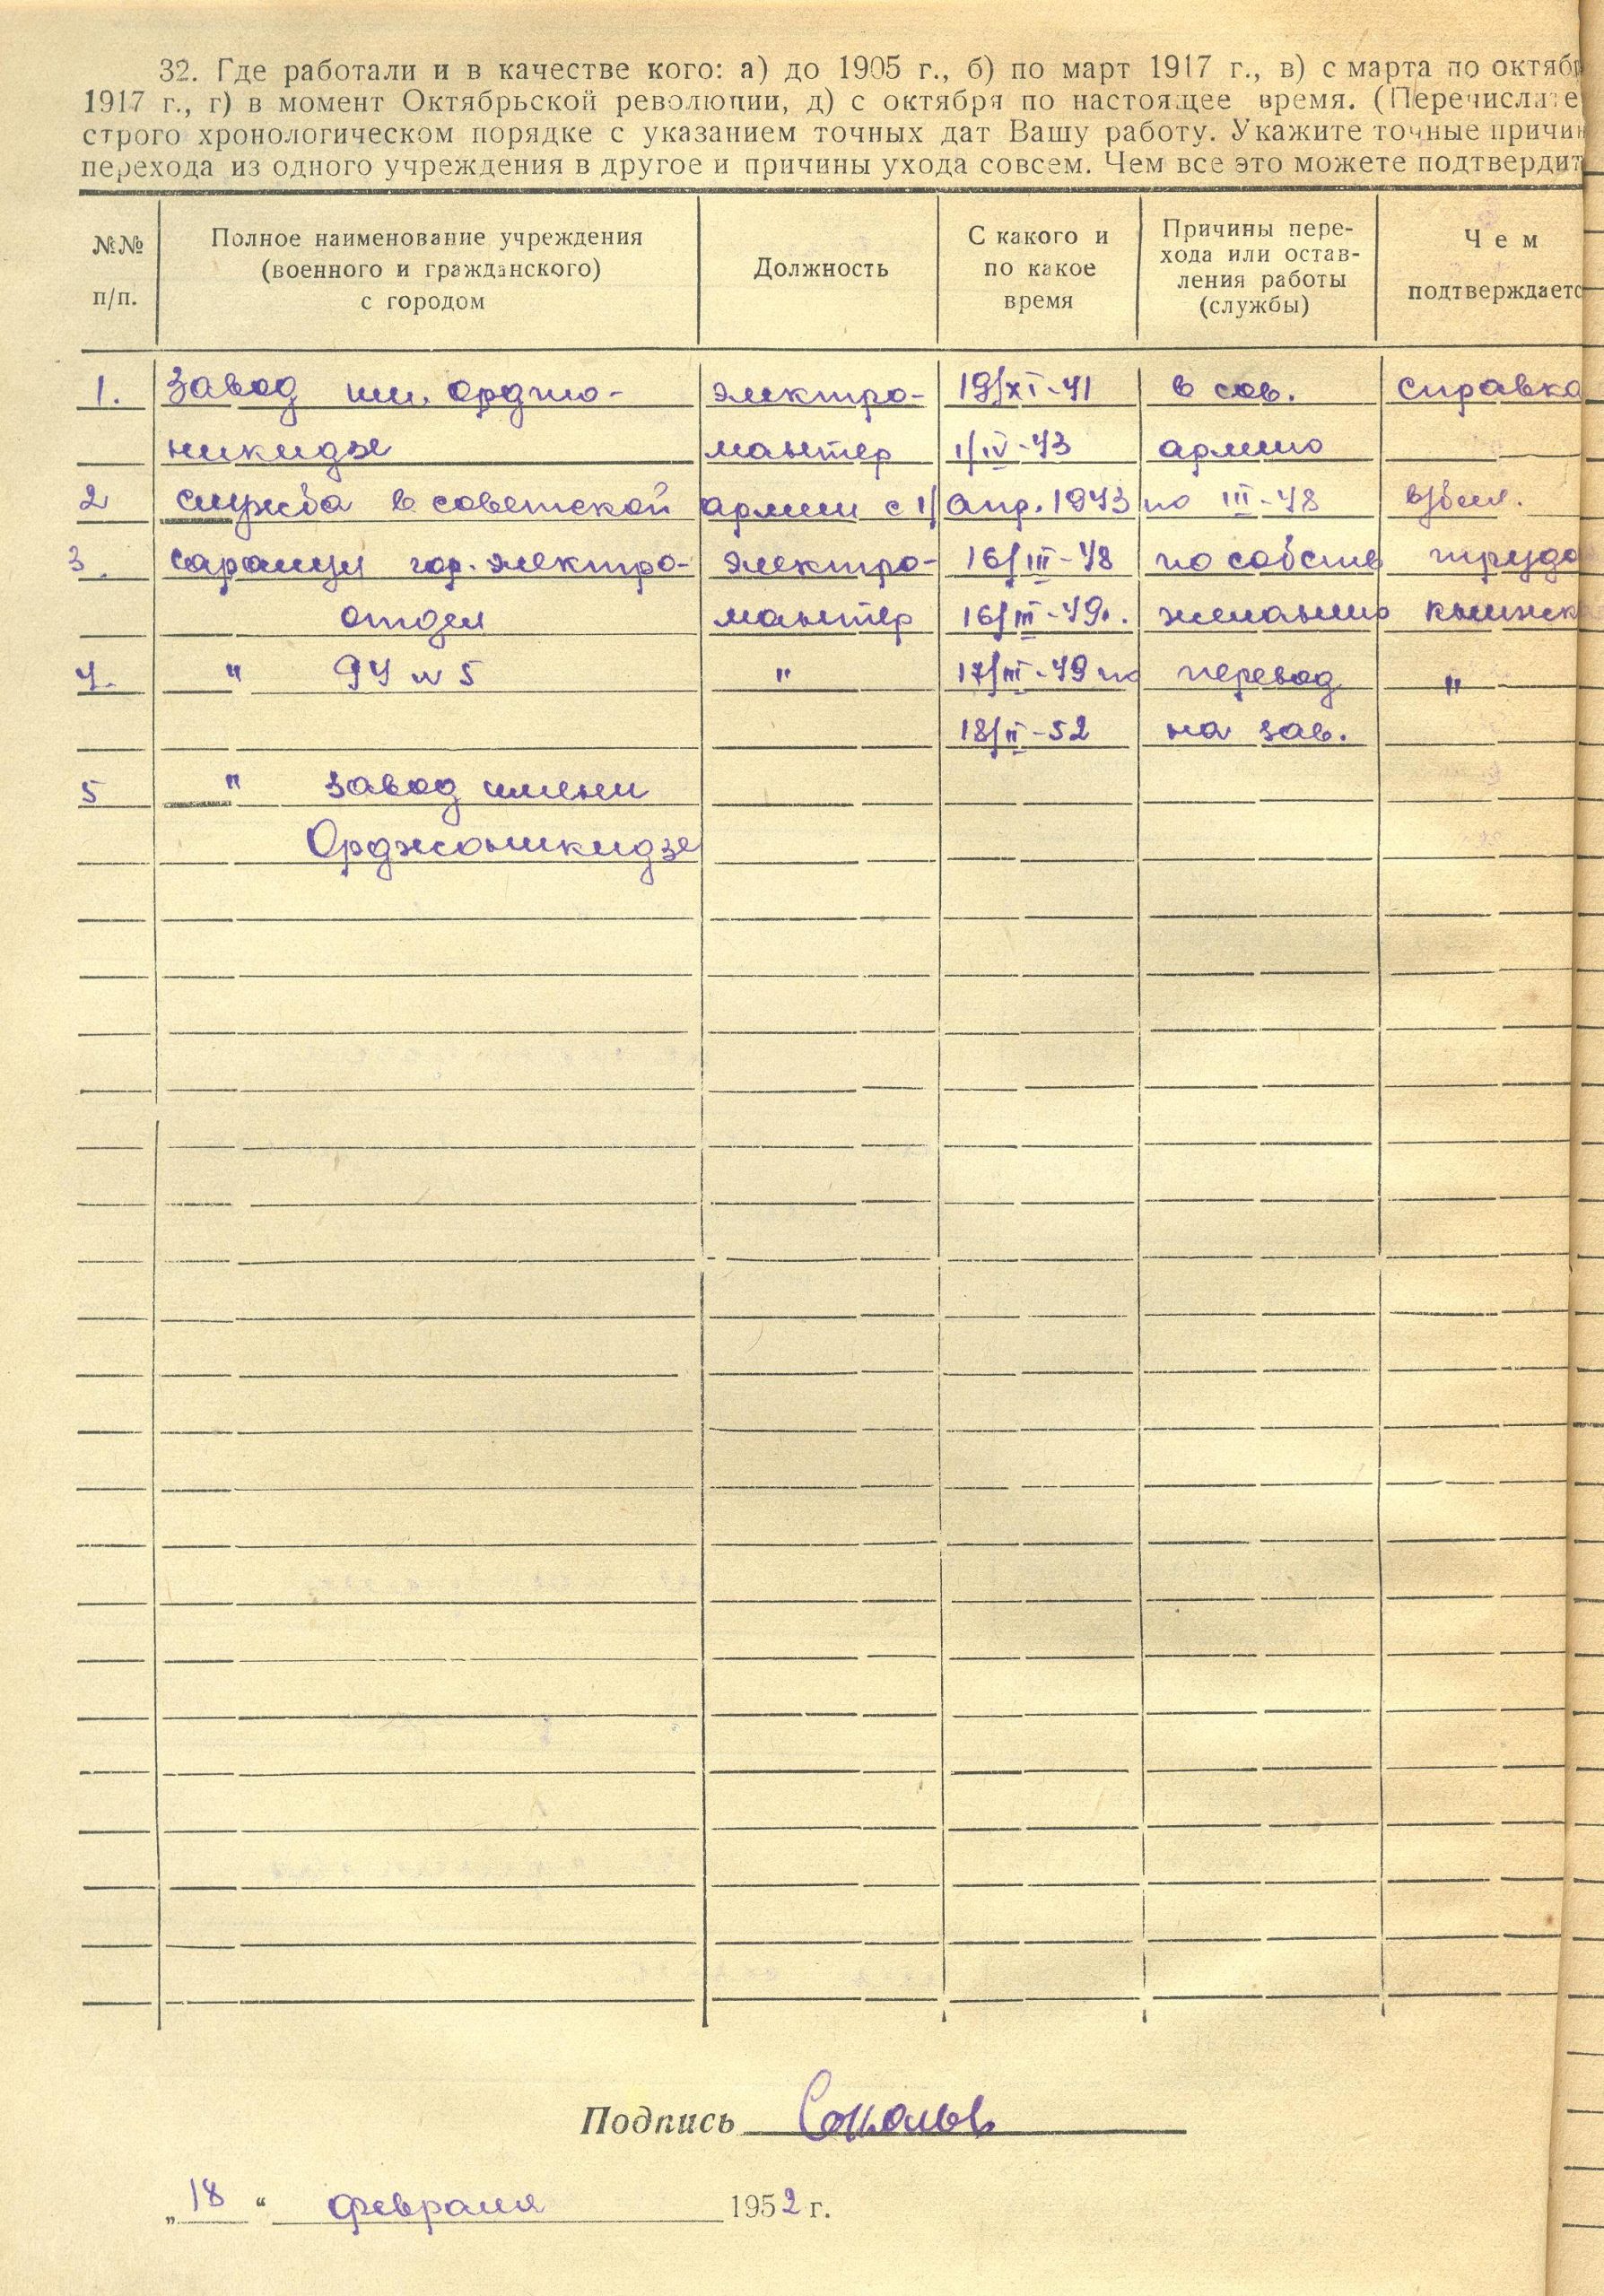 32. Где работали и в качестве кого: а) до 1905 г., б) по март 1917 г., в) с марта по октябр
1917 г., г) в момент Октябрьской революции, д) с октября по настоящее время. (Перечислите
строго хронологическом порядке с указанием точных дат Вашу работу. Укажите точные причин
перехода из одного учреждения в другое и причины ухода совсем. Чем все это можете подтвердит
№№ п/п. Полное наименование учреждения (военного и гражданского) с городом Должность С какого и по какое время Причины перехода или оставления работы (службы) Чем подтверждаетс
1. Завод им. Орджо- электро- 19/XI-41 в сов. справка
никидзе монтер 1/IV-43 армию
2 служба в советской армии с 1/ апр. 1943 по III-48 в/бил.
3. Саранск гор. электро- электро- 16/III-48 по собств трудо
отдел монтер 16/III-49г. желанию книжк
4. " № 5 " 17/III-49 по перевод "
18/II-52 на зав.
5 " завод имени
Орджоникидзе
Подпись Соколов
„18“ февраля 1952 г.